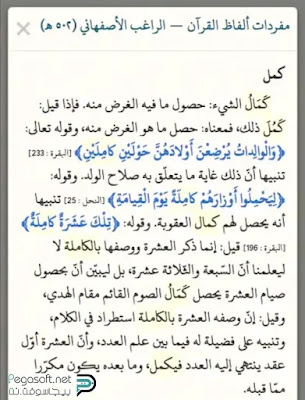 مفردات ألفاظ القرآن — الراغب الأصفهاني (٥٠٢ هـ)
كمل
كَمَالُ الشيء: حصول ما فيه الغرض منه. فإذا قيل:
كَمُلَ ذلك، فمعناه: حصل ما هو الغرض منه، وقوله تعالى:
﴿وَالْوالِداتُ يُرْضِعْنَ أَوْلادَهُنَّ حَوْلَيْنِ كامِلَيْنِ﴾ [البقرة : 233]
تنبيها أنّ ذلك غاية ما يتعلّق به صلاح الولد. وقوله:
﴿لِيَحْمِلُوا أَوْزارَهُمْ كامِلَةً يَوْمَ الْقِيامَةِ﴾ [النحل : 25] تنبيها
أنه يحصل لهم كمال العقوبة. وقوله: ﴿تِلْكَ عَشَرَةٌ كامِلَةٌ﴾
[البقرة : 196] قيل: إنما ذكر العشرة ووصفها بالكاملة لا
ليعلمنا أنّ السّبعة والثلاثة عشرة، بل ليبيّن أنّ بحصول
صيام العشرة يحصل كَمَالُ الصوم القائم مقام الهدي،
وقيل: إنّ وصفه العشرة بالكاملة استطراد في الكلام،
وتنبيه على فضيلة له فيما بين علم العدد، وأنّ العشرة أوّل
عقد ينتهي إليه العدد فيكمل، وما بعده يكون مكرّرا
ممّا قبله.
Pegasoft.net
بيجاسوفت.نت